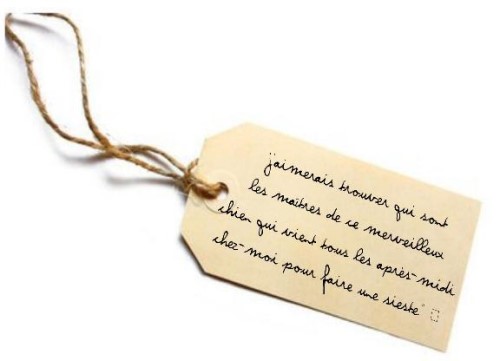 j'aimerais trouver qui sont
les maîtres de ce merveilleux
chien qui vient tous les après-midi
chez-moi pour faire une sieste"